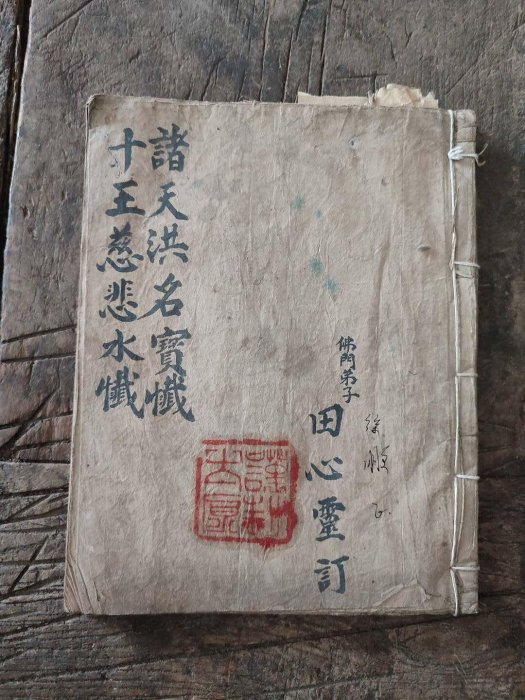 諸天洪名寳懺
十王慈悲水懺
佛門弟子
田心靈訂